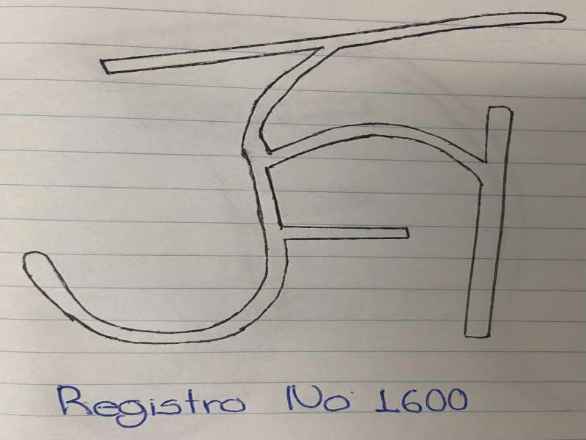 Registro No 1600